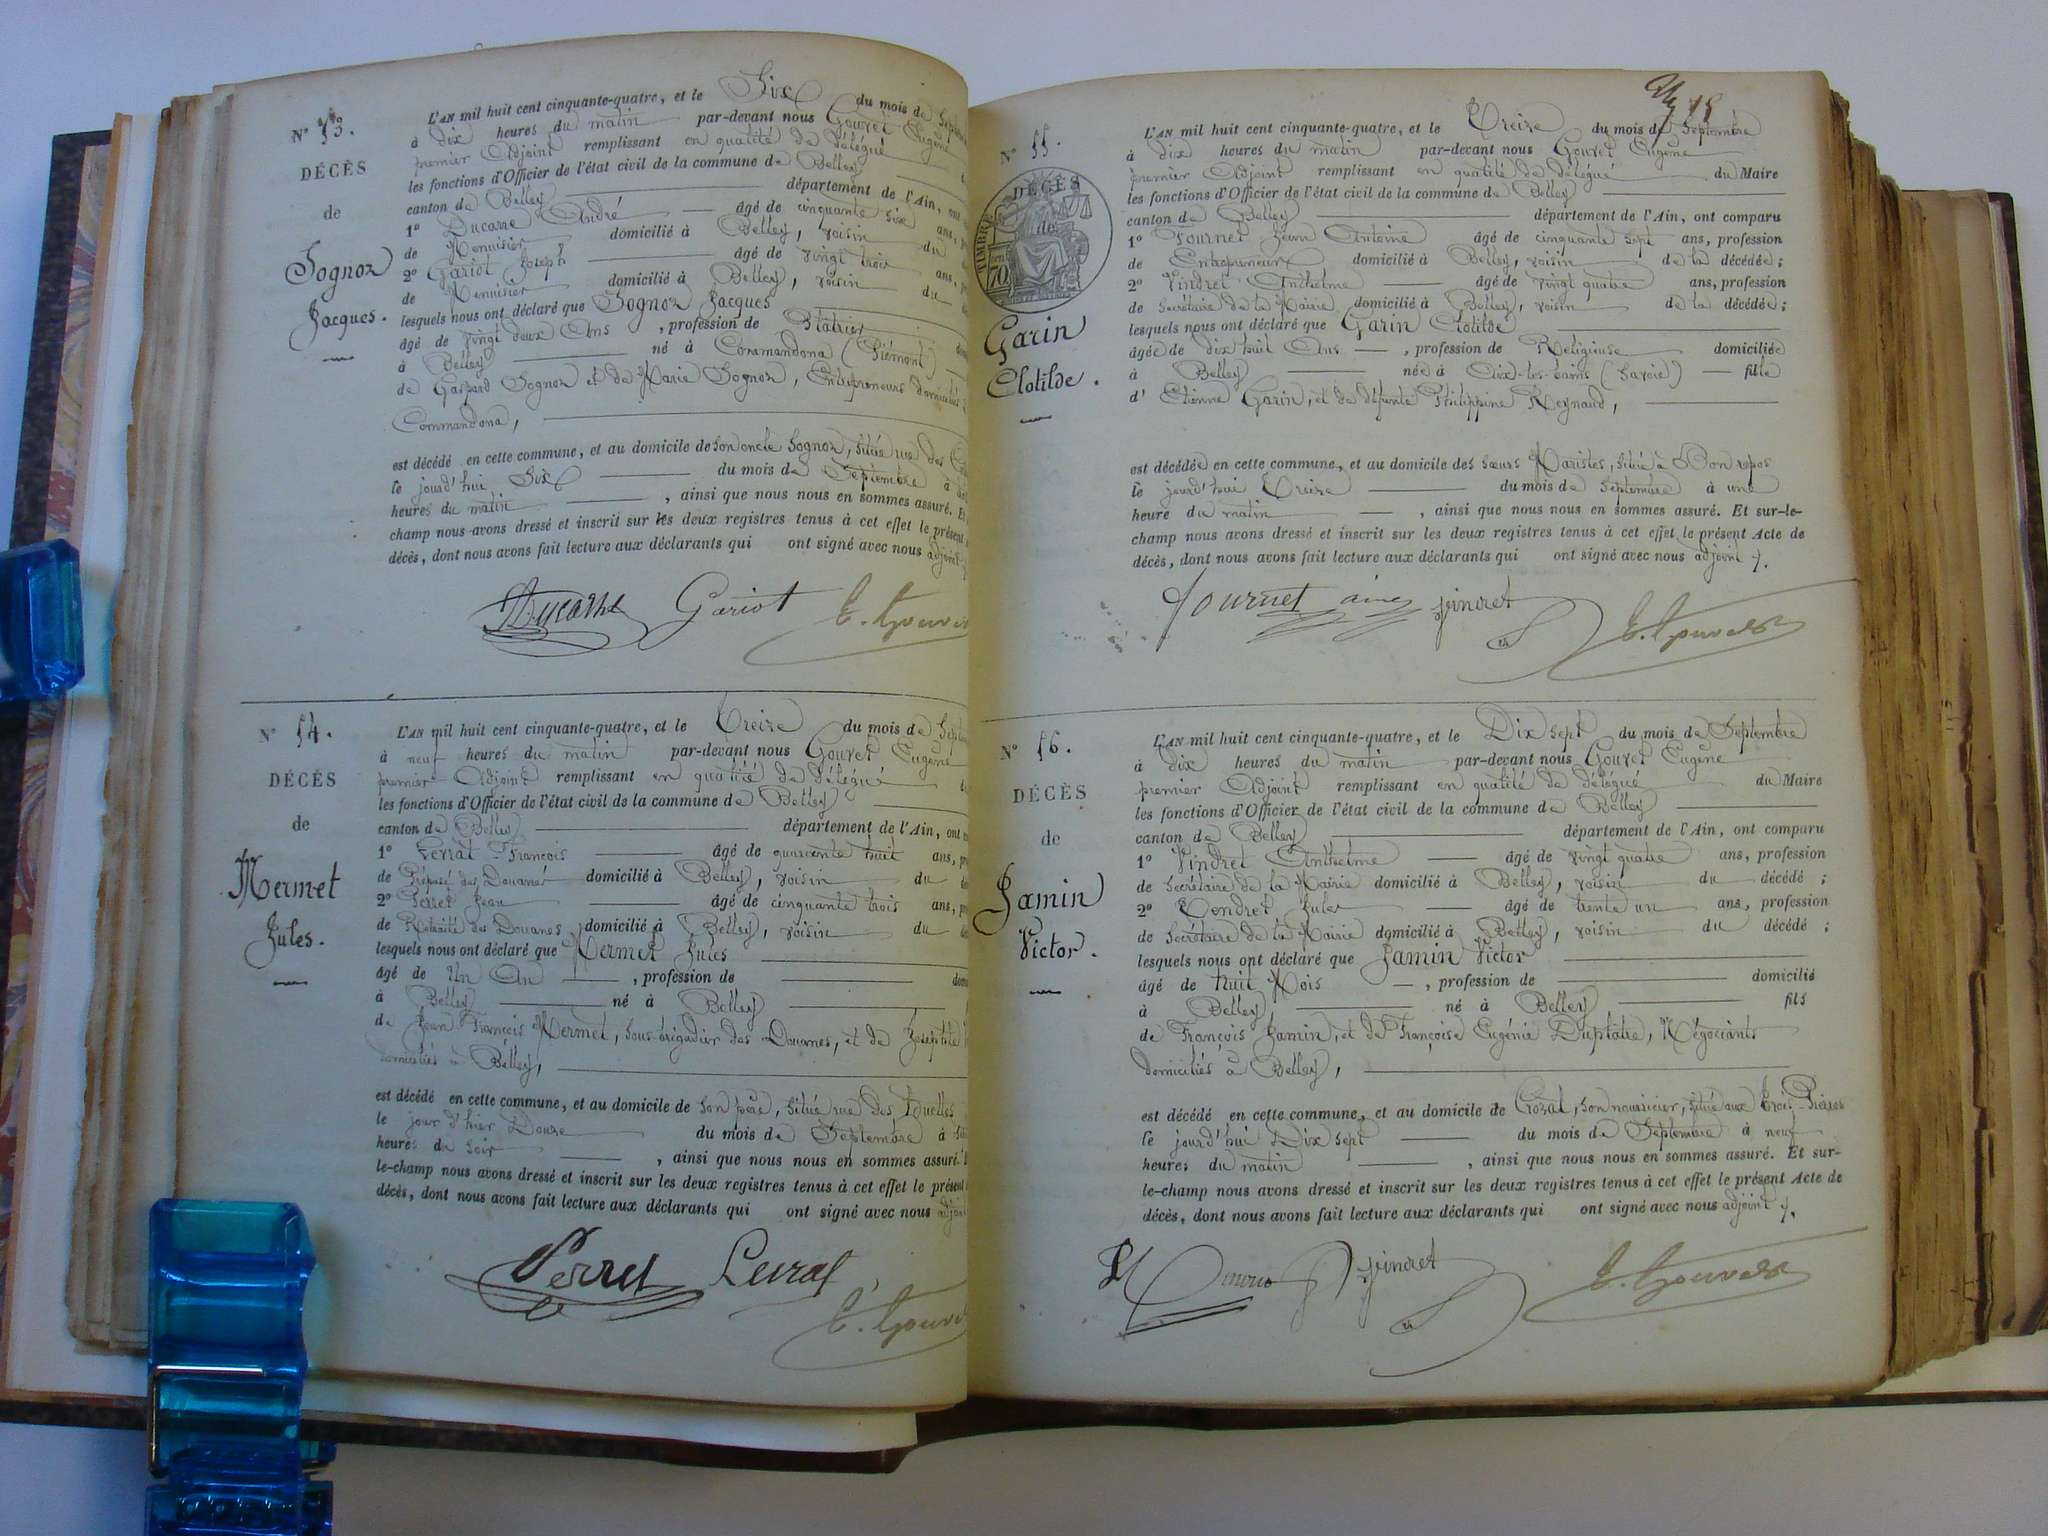 Nº 53.
DÉCÈS
de
Sognoz
Jacques.
L'AN mil huit cent cinquante-quatre, et le Six du mois de
à dix heures du matin par-devant nous Gouvet Eugène
premier Adjoint remplissant en qualité de délégué
les fonctions d'Officier de l'état civil de la commune de Belley
canton de Belley département de l'Ain, ont
1º Ducarre André âgé de cinquante six ans,
de Menuisier domicilié à Belley, voisin du
2º Gariot Joseph âgé de vingt trois ans,
de Menuisier domicilié à Belley, voisin du
lesquels nous ont déclaré que Sognoz Jacques
âgé de vingt deux Ans, profession de Plâtrier
à Belley né à Commandona (Piémont)
de Gaspard Sognoz et de Marie Sognoz, Entrepreneurs domiciliés
Commandona,
est décédé en cette commune, et au domicile de son oncle Sognoz, située rue des
le jourd'hui Six du mois de Septembre à
heures du matin, ainsi que nous nous en sommes assuré. Et
champ nous avons dressé et inscrit sur les deux registres tenus à cet effet le présent
décès, dont nous avons fait lecture aux déclarants qui ont signé avec nous adjoint
Ducarre Gariot E. Gouvet
Nº 54.
DÉCÈS
de
Mermet
Jules.
L'AN mil huit cent cinquante-quatre, et le Treize du mois de
à neuf heures du matin par-devant nous Gouvet Eugène
premier Adjoint remplissant en qualité de délégué
les fonctions d'Officier de l'état civil de la commune de Belley
canton de Belley département de l'Ain, ont
1º Levrat François âgé de quarante huit ans,
de Préposé des Douanes domicilié à Belley, voisin du
2º Perret Jean âgé de cinquante trois ans,
de Retraité des Douanes domicilié à Belley, voisin du
lesquels nous ont déclaré que Mermet Jules
âgé de Un An, profession de
à Belley né à Belley
de Jean François Mermet, sous-brigadier des Douanes, et de Josephte
domiciliés à Belley,
est décédé en cette commune, et au domicile de son père, située rue des
le jour d'hier Douze du mois de Septembre à
heures du soir, ainsi que nous nous en sommes assuré.
le-champ nous avons dressé et inscrit sur les deux registres tenus à cet effet le présent
décès, dont nous avons fait lecture aux déclarants qui ont signé avec nous
Perret Levrat
E. Gouvet
18
Nº 55.
DÉCÈS
de
TIMBRE
70
Garin
Clotilde.
L'AN mil huit cent cinquante-quatre, et le Treize du mois de Septembre
à dix heures du matin par-devant nous Gouvet Eugène
premier Adjoint remplissant en qualité de délégué du Maire
les fonctions d'Officier de l'état civil de la commune de Belley
canton de Belley département de l'Ain, ont comparu
1º Fournet Jean Antoine âgé de cinquante sept ans, profession
de Entrepreneur domicilié à Belley, voisin de la décédée;
2º Vindret Anthelme âgé de vingt quatre ans, profession
de Secrétaire de la Mairie domicilié à Belley, voisin de la décédée;
lesquels nous ont déclaré que Garin Clotilde
âgée de dix huit Ans, profession de Religieuse domiciliée
à Belley née à Aix-les-bains (Savoie) fille
d'Etienne Garin, et de défunte Philippine Reynaud,
est décédée en cette commune, et au domicile des sœurs Maristes, situé à Bon repos
le jourd'hui Treize du mois de Septembre à une
heure du matin, ainsi que nous nous en sommes assuré. Et sur-le-
champ nous avons dressé et inscrit sur les deux registres tenus à cet effet le présent Acte de
décès, dont nous avons fait lecture aux déclarants qui ont signé avec nous adjoint
Fournet ainé Vindret E. Gouvet
Nº 56.
DÉCÈS
de
Jamin
Victor.
L'AN mil huit cent cinquante-quatre, et le Dix sept du mois de Septembre
à dix heures du matin par-devant nous Gouvet Eugène
premier Adjoint remplissant en qualité de délégué du Maire
les fonctions d'Officier de l'état civil de la commune de Belley
canton de Belley département de l'Ain, ont comparu
1º Vindret Anthelme âgé de vingt quatre ans, profession
de Secrétaire de la Mairie domicilié à Belley, voisin du décédé;
2º Jules âgé de trente un ans, profession
de Secrétaire de la Mairie domicilié à Belley, voisin du décédé;
lesquels nous ont déclaré que Jamin Victor
âgé de huit Mois, profession de domicilié
à Belley né à Belley fils
de François Jamin, et de Françoise Eugénie, Négociants
domiciliés à Belley,
est décédé en cette commune, et au domicile de Crozat, son nourricier, situé aux Trois-Pierres
le jourd'hui Dix sept du mois de Septembre à neuf
heures du matin, ainsi que nous nous en sommes assuré. Et sur-
le-champ nous avons dressé et inscrit sur les deux registres tenus à cet effet le présent Acte de
décès, dont nous avons fait lecture aux déclarants qui ont signé avec nous adjoint
Vindret E. Gouvet